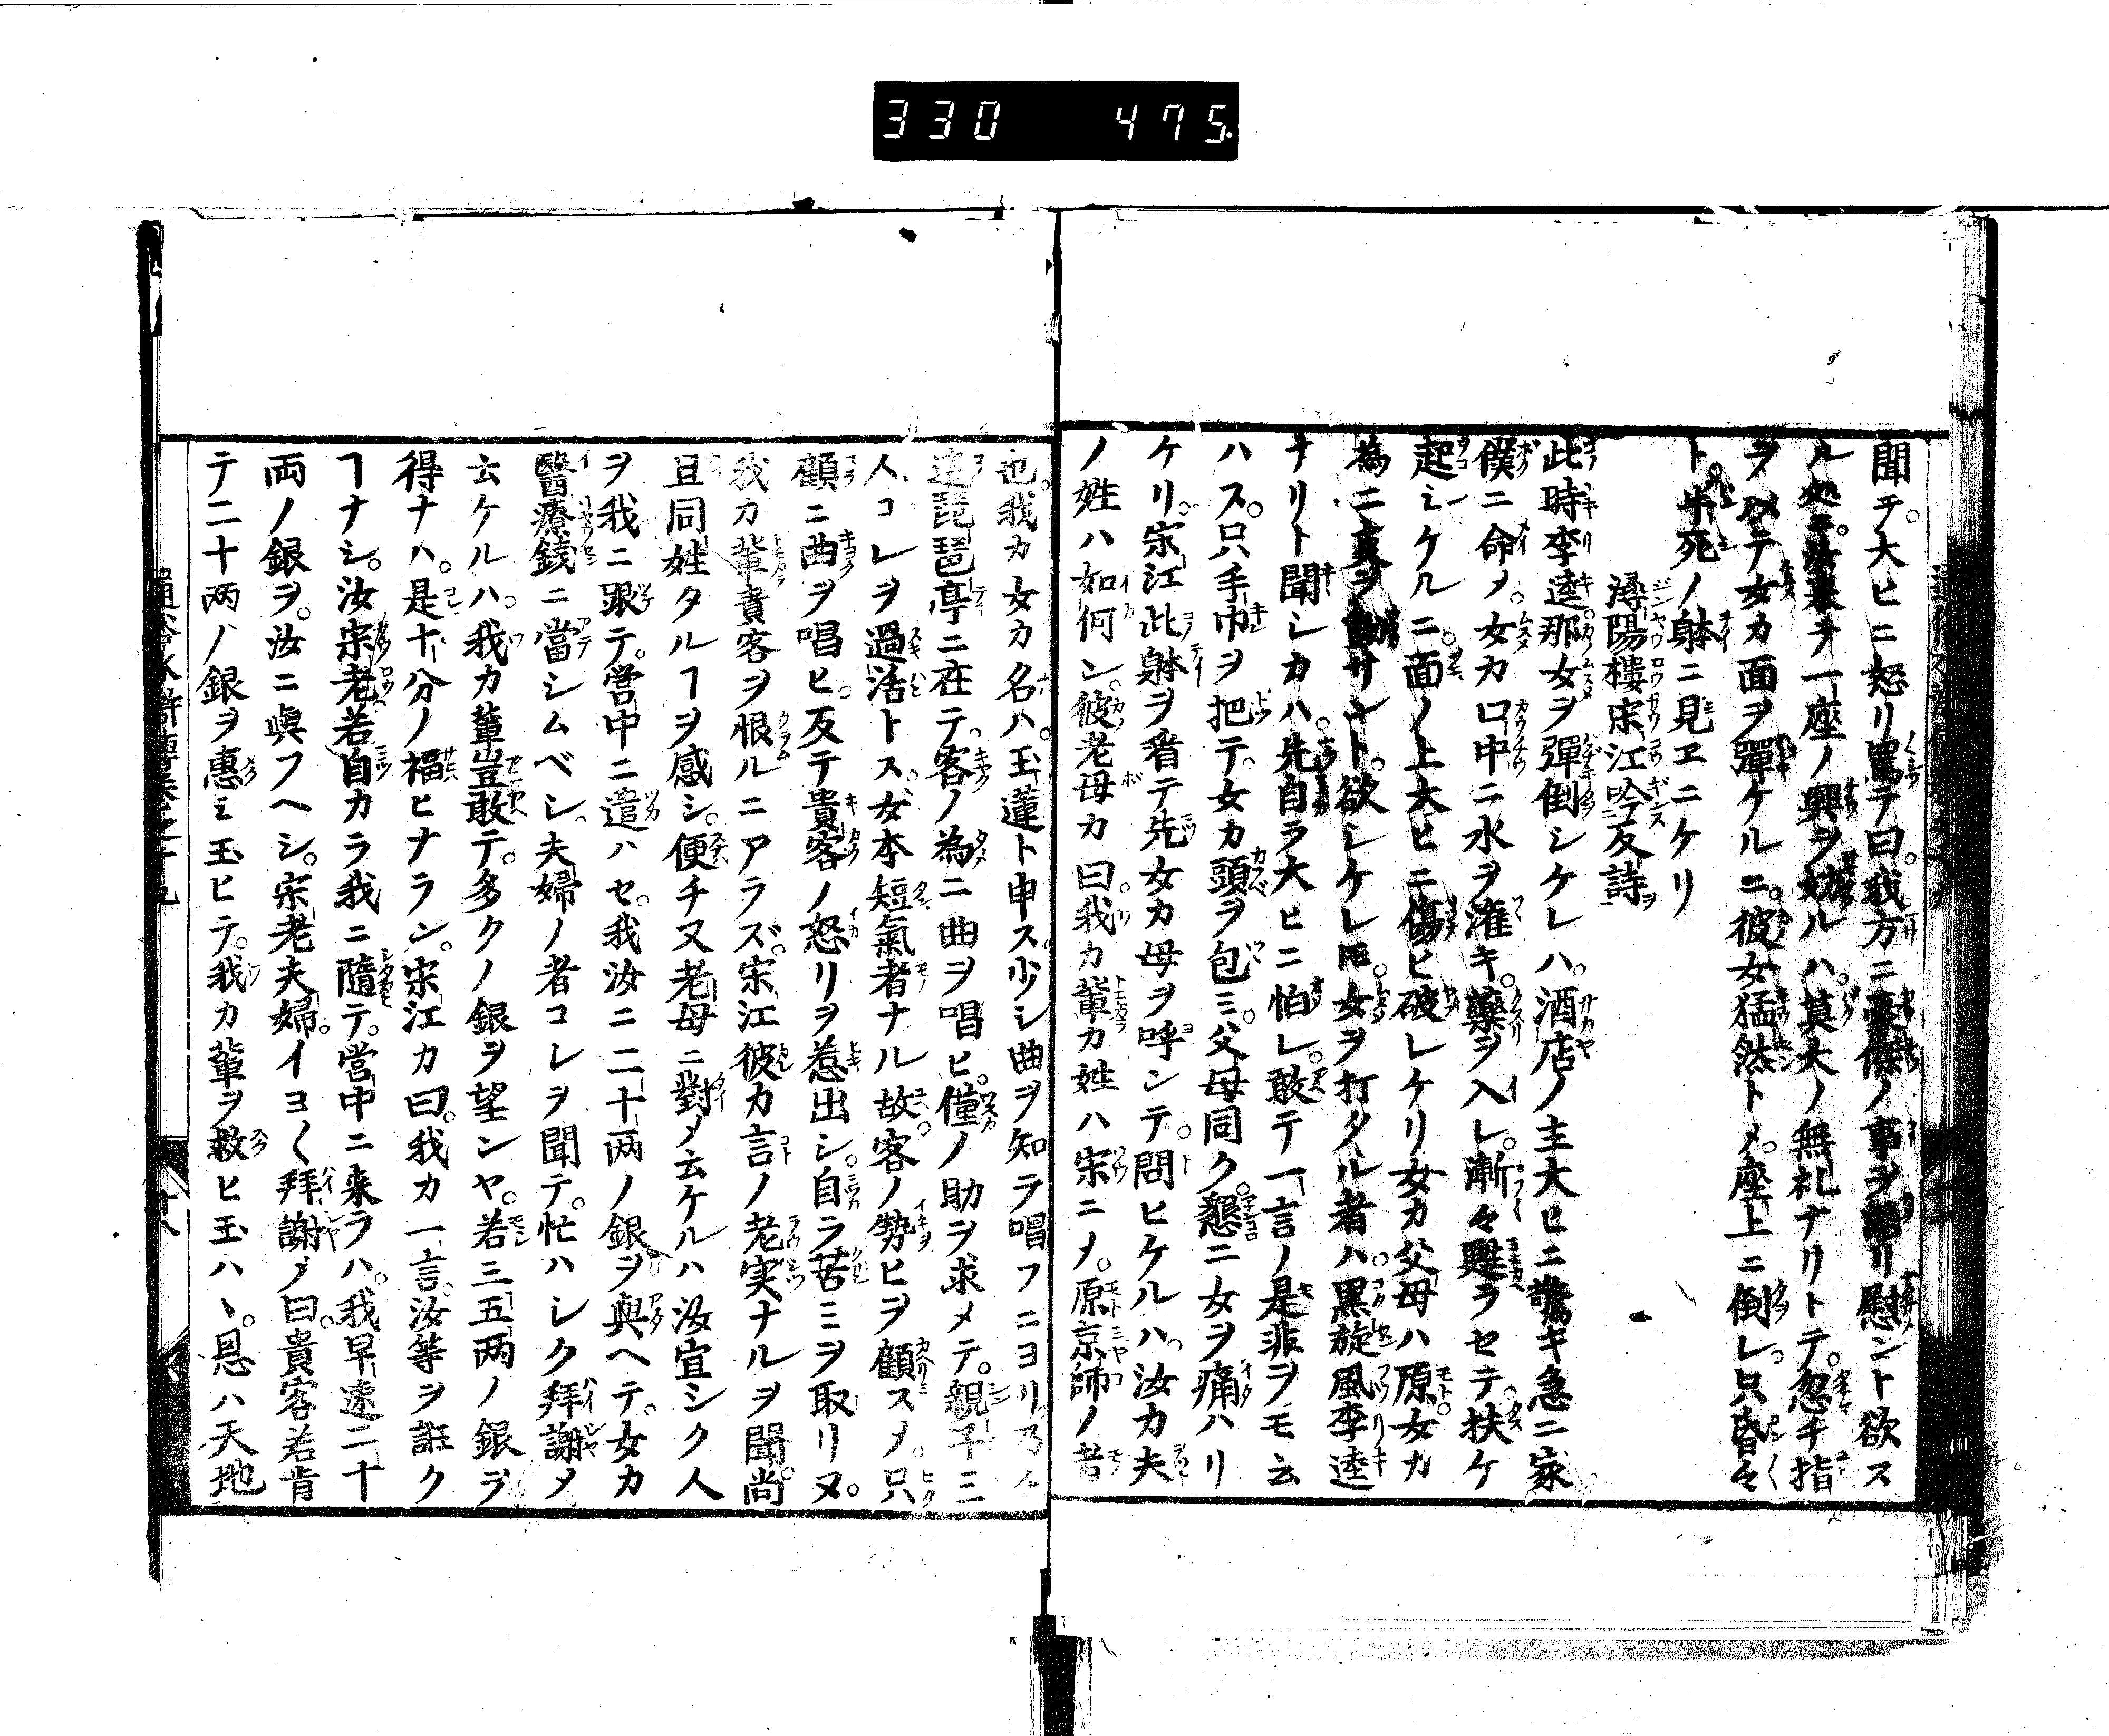 330 475
聞テ。大ヒニ怒リ罵テ曰。我方ニ豪傑ノ事ヲ語リ慰ント欲ス
ル処ニ。汝来テ一座ノ興ヲ妨ルハ。莫大ノ無礼ナリトテ。忽チ指
ヲ以テ女カ面ヲ彈ケルニ。彼女猛然トメ。座上ニ倒レ。只昏々
ト半死ノ躰ニ見ヱニケリ
潯陽樓宋江吟反詩
此時李逵那女ヲ彈倒シケレハ。酒店ノ主大ヒニ驚キ急ニ家
僕ニ命メ。女カ口中ニ水ヲ潅キ。藥ヲ入レ。漸々甦ラセテ。扶ケ
起シケルニ。面ノ上大ヒニ傷ヒ破レケリ女カ父母ハ原女カ
為ニ事ヲ動サント。欲シケレ𪜈。女ヲ打タル者ハ。黒旋風李逵
ナリト聞シカハ。先自ラ大ヒニ怕レ。敢テ一言ノ是非ヲモ云
ハス。只手巾ヲ把テ。女カ頭ヲ包ミ。父母同ク。懇ニ女ヲ痛ハリ
ケリ。宋江此躰ヲ看テ先女カ母ヲ呼ンテ。問ヒケルハ。汝カ夫
ノ姓ハ如何ン。彼老母カ曰。我カ輩カ姓ハ宋ニメ。原京師ノ者
也。我カ女カ名ハ。玉蓮ト申ス。少シ曲ヲ知ラ唱フニヨリ乃チ
這琵琶亭ニ在テ。客ノ為ニ曲ヲ唱ヒ。僅ノ助ヲ求メテ。親子三
人コレヲ過活トス。女本短氣者ナル故。客ノ勢ヒヲ顧スメ。只
顧ニ曲ヲ唱ヒ。反テ貴客ノ怒リヲ惹出シ。自ラ苦ミヲ取リヌ。
我カ輩貴客ヲ恨ルニアラズ。宋江彼カ言ノ老実ナルヲ聞。尚
且同姓タルヿヲ感シ。便チ又老母ニ對メ云ケルハ汝宜シク人
ヲ我ニ跟テ。営中ニ遣ハセ。我汝ニ二十両ノ銀ヲ與ヘテ。女カ
醫療銭ニ當シムベシ。夫婦ノ者コレヲ聞テ。忙ハシク拜謝メ
云ケルハ。我カ輩豈敢テ。多クノ銀ヲ望ンヤ。若三五両ノ銀ヲ
得ナハ。是十分ノ福ヒナラン。宋江カ曰。我カ一言。汝等ヲ誑ク
ヿナシ。汝宋老若自カラ我ニ隨テ。営中ニ来ラハ。我早速二十
両ノ銀ヲ。汝ニ與フヘシ。宋老夫婦。イヨ〱拜謝メ曰。貴客若肯
テ二十両ノ銀ヲ惠ミ玉ヒテ。我カ輩ヲ救ヒ玉ハヽ。恩ハ天地